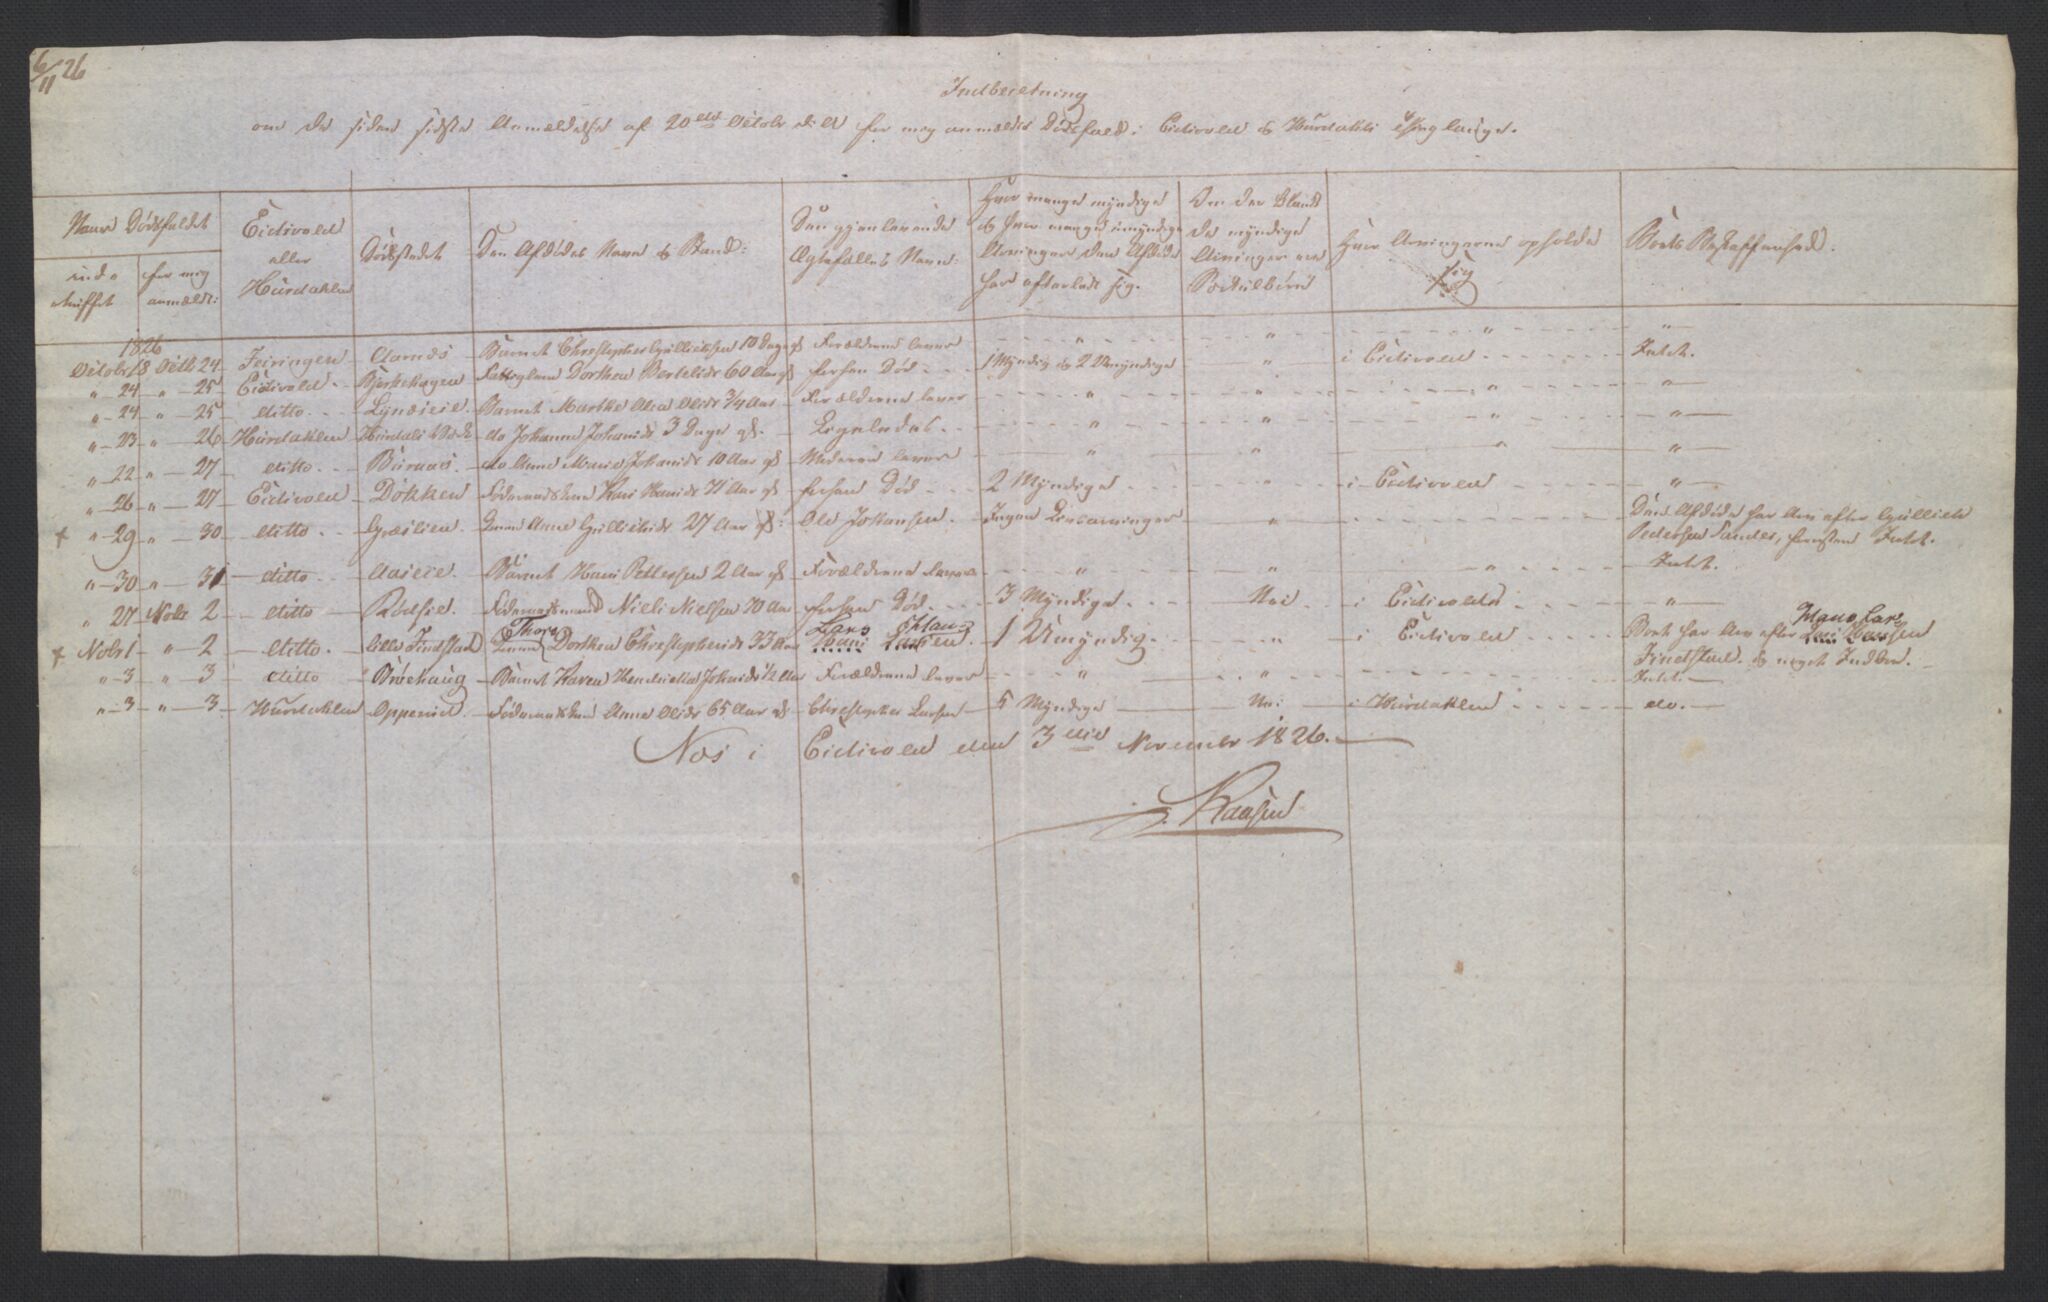 6/11 26
Indberetning
om de siden sidste Anmældelse af 20de Octobr d: A for mig anmeldte Dødsfald i Eidsvold & Hurdahls Thinglauge.
Naar Dødsfaldet
inde truffet
for mig anmeldt:
Eidsvold eller Hurdahlen
Dødsstedet
Den Afdødes Navn & Stand:
Den gjenlevende Ægtefælles Navn:
Hvor mange myndige & hvor mange umyndige Arvinger den Afdøde har efterladt sig.
Om der blandt de myndige Arvinger ere
Hvor Arvingerne opholde sig
Boets Beskaffenhed.
1826
Octobr 18 Octb 24 Feiringen Aarnæs Barnet Christopher Gulliksen 10 Dage gl Forældrene lever " " " "
" 24 " 25 Eidsvold Bjerkehagen Fattiglem Dorthea Bertelsdr 60 Aar gl forhen Død 1 Myndig & 2 Umyndige " i Eidsvold Intet.
" 24 " 25 ditto Barnet Marthe Olea Olsdr 3/4 Aar Forældrene lever " " "
" 23 " 26 Hurdahlen Hurdals do Johanne Johansdr 3 Dage gl. Ligeledes " " "
" 22 " 27 ditto do Anne Marie Johansdr 10 Aar gl Moderen lever " " "
" 26 " 27 Eidsvold Døkken Føderaadskone Kari Hansdr 71 Aar gl forhen Død 2 Myndige " i Eidsvold "
+ " 29 " 30 ditto Græslien Konen Anne Gulliksdr 27 Aar gl: Ole Johansen Ingen Livsarvinger " Den Afdøde har Arv efter Gullich
Pedersen Sander, forresten Intet.
" 30 " 31 ditto Barnet Hans Pettersen 2 Aar gl Forældrene lever " " " Intet.
" 27 Nobr 2 ditto Rødsie Føderaadsmand Niels Nielsen 70 Aar forhen Død 3 Myndige Nei i Eidsvold "
+ Nobr 1 " 2 ditto Lille Findstad Konen Dorthea Christophersdr 33 Aar Lars Hansen 1 Umyndig " i Eidsvold Boet har Arv efter Hans Larsen
Findstad & noget Indbo.
" 3 " 3 ditto Brøehaug Barnet Karen Hendricka Johnsdr 1/2 Aar Forældrene lever " " Intet.
" 3 " 3 Hurdahlen Oppenid Føderaadskone Anne Olsdr 65 Aar gl Christopher Larsen 5 Myndige Nei i Hurdahlen do.
Næs i Eidsvold den 3die November 1826.